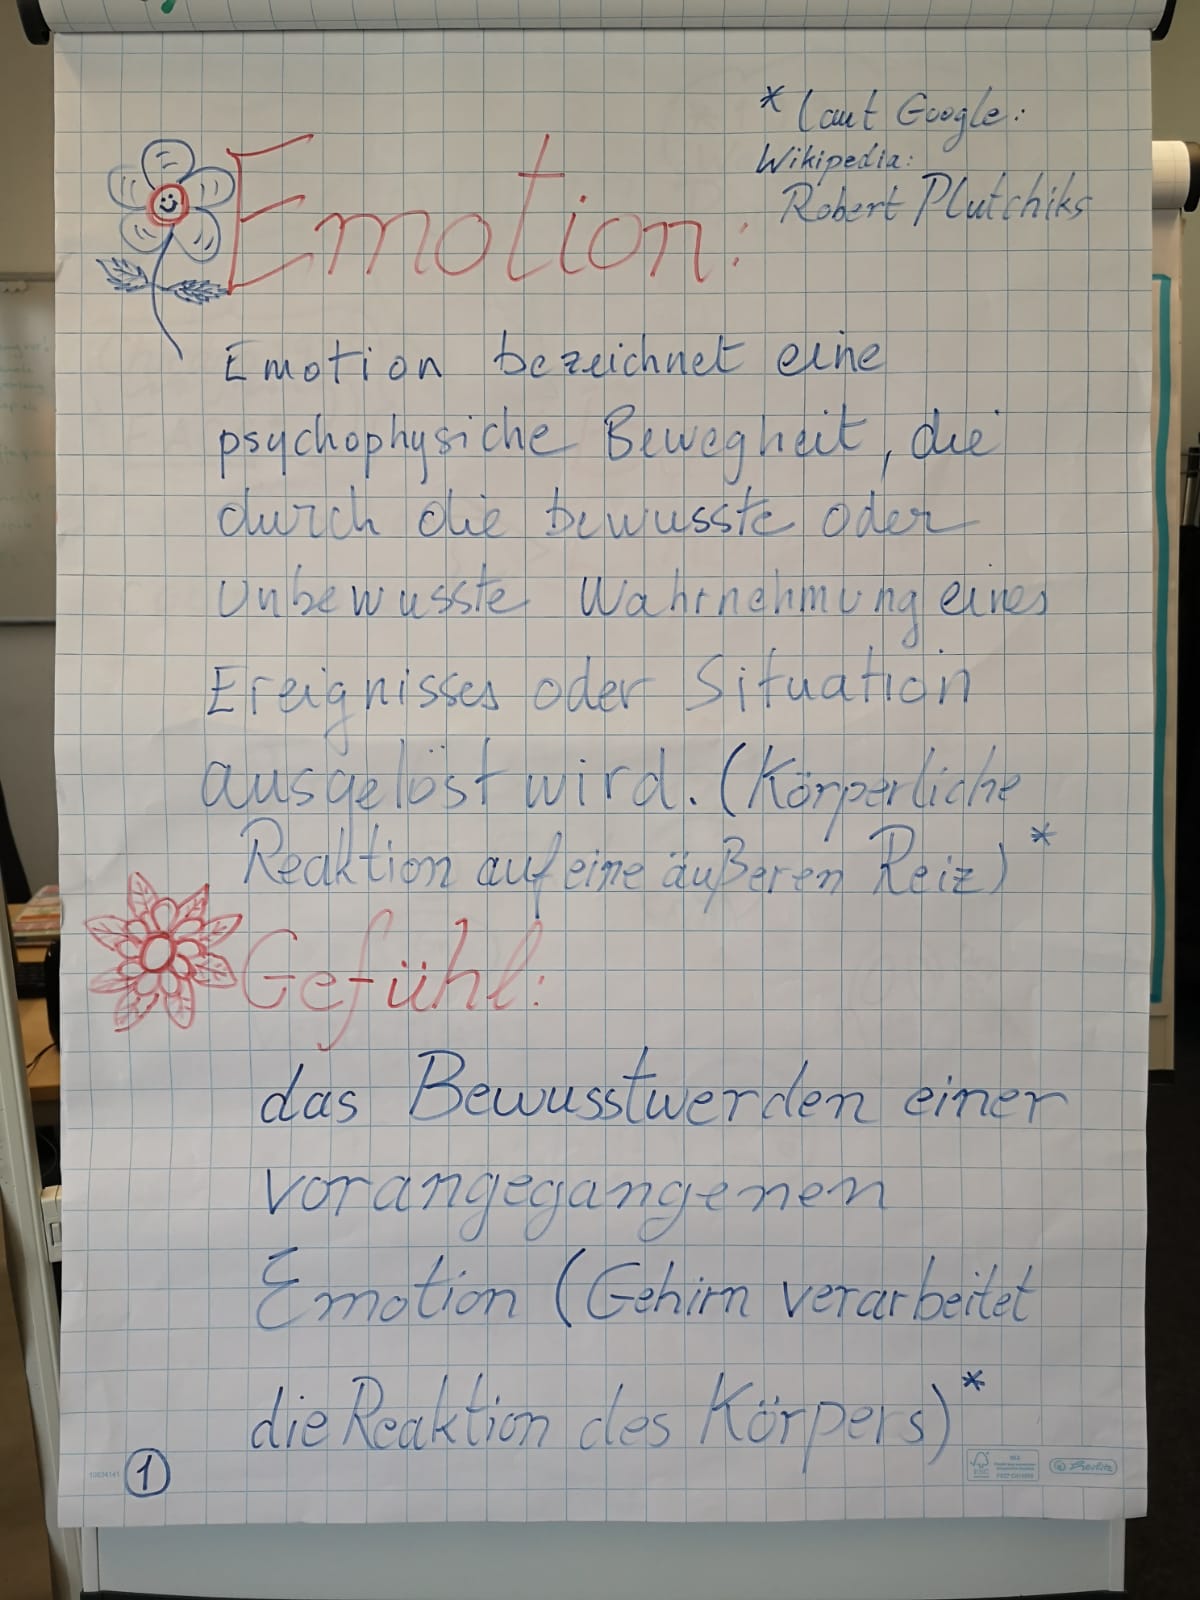 * laut Google:
Wikipedia:
Robert Plutchiks
Emotion:
Emotion bezeichnet eine
psychophysiche Bewegheit, die
durch die bewusste oder
Unbewusste Wahrnehmung eines
Ereignisses oder Situation
ausgelöst wird. (Körperliche
Reaktion auf eine äußeren Reiz) *
Gefühl:
das Bewusstwerden einer
vorangegangenen
Emotion (Gehirn verarbeitet
die Reaktion des Körpers) *
1